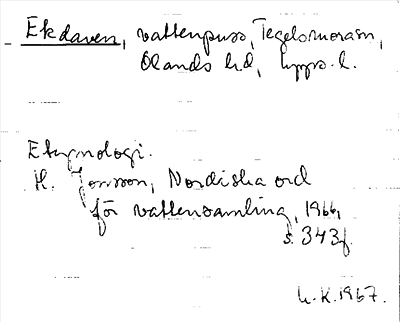 Ekdaven, vattenpuss, Tegelsmorasm,
Ölands hd, Upps. l.
Etymologi.
H. Jonsson, Nordiska ord
för vattensamling, 1966,
s. 343f.
h.K.1967.